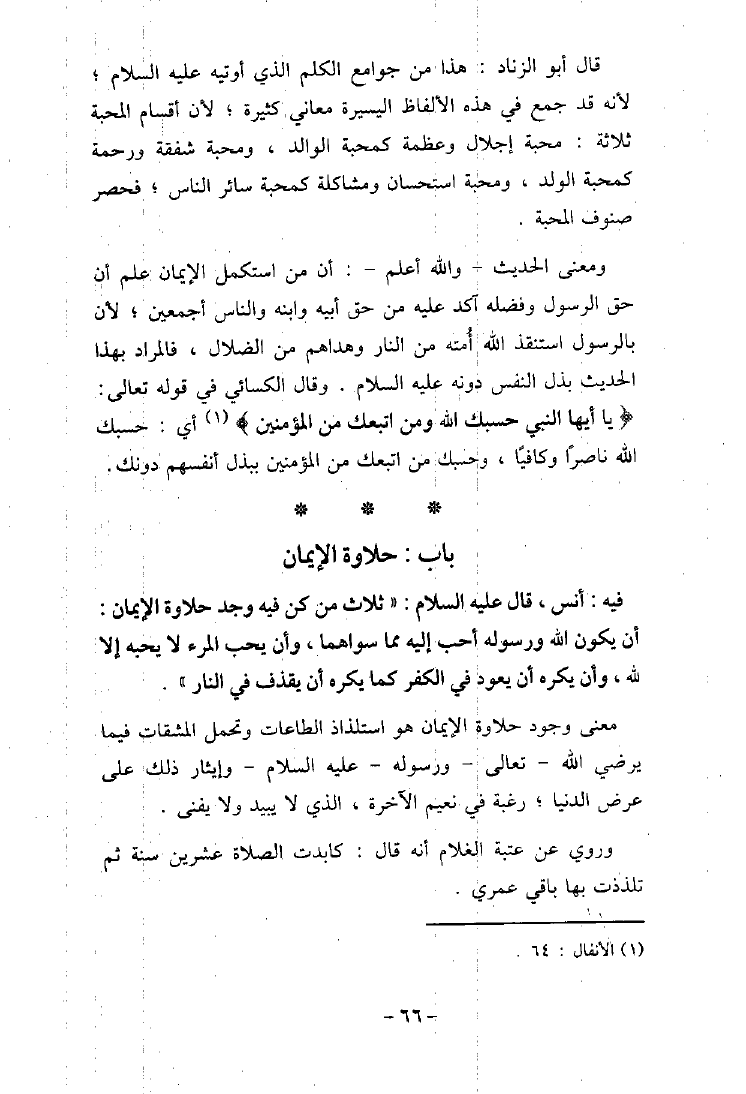 قال أبو الزناد : هذا من جوامع الكلم الذي أوتيه عليه السلام ؛
لأنه قد جمع في هذه الألفاظ اليسيرة معاني كثيرة ؛ لأن أقسام المحبة
ثلاثة : محبة إجلال وعظمة كمحبة الوالد ، ومحبة شفقة ورحمة
كمحبة الولد ، ومحبة استحسان ومشاكلة كمحبة سائر الناس ؛ فحصر
صنوف المحبة .
ومعنى الحديث - والله أعلم - : أن من استكمل الإيمان علم أن
حق الرسول وفضله آكد عليه من حق أبيه وابنه والناس أجمعين ؛ لأن
بالرسول استنقذ الله أُمته من النار وهداهم من الضلال ، فالمراد بهذا
الحديث بذل النفس دونه عليه السلام . وقال الكسائي في قوله تعالى:
﴿ يا أيها النبي حسبك الله ومن اتبعك من المؤمنين ﴾ (١) أي : حسبك
الله ناصرًا وكافيًا ، وحسبك من اتبعك من المؤمنين ببذل أنفسهم دونك .
* * *
باب : حلاوة الإيمان
فيه : أنس ، قال عليه السلام : « ثلاث من كن فيه وجد حلاوة الإيمان :
أن يكون الله ورسوله أحب إليه مما سواهما ، وأن يحب المرء لا يحبه إلا
لله ، وأن يكره أن يعود في الكفر كما يكره أن يقذف في النار » .
معنى وجود حلاوة الإيمان هو استلذاذ الطاعات وتحمل المشقات فيما
يرضي الله - تعالى - ورسوله - عليه السلام - وإيثار ذلك على
عرض الدنيا ؛ رغبة في نعيم الآخرة ، الذي لا يبيد ولا يفنى .
وروي عن عتبة الغلام أنه قال : كابدت الصلاة عشرين سنة ثم
تلذذت بها باقي عمري .
(١) الأنفال : ٦٤ .
- ٦٦ -